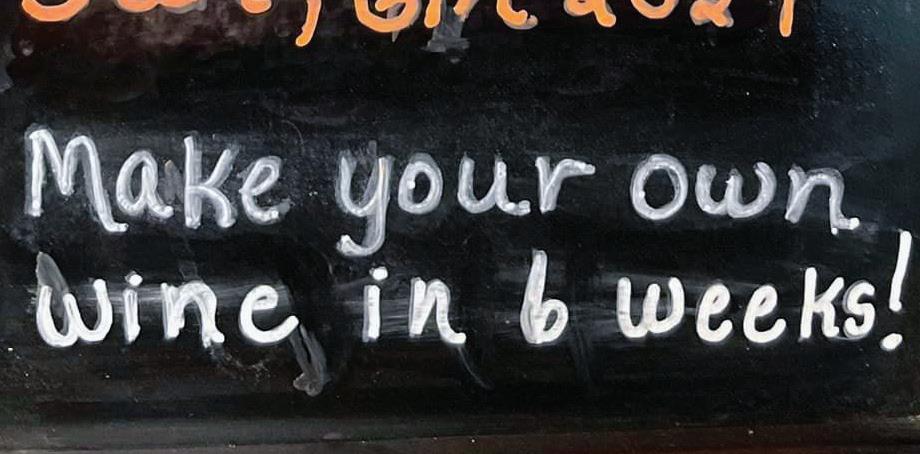 Make your own
wine in 6 weeks!